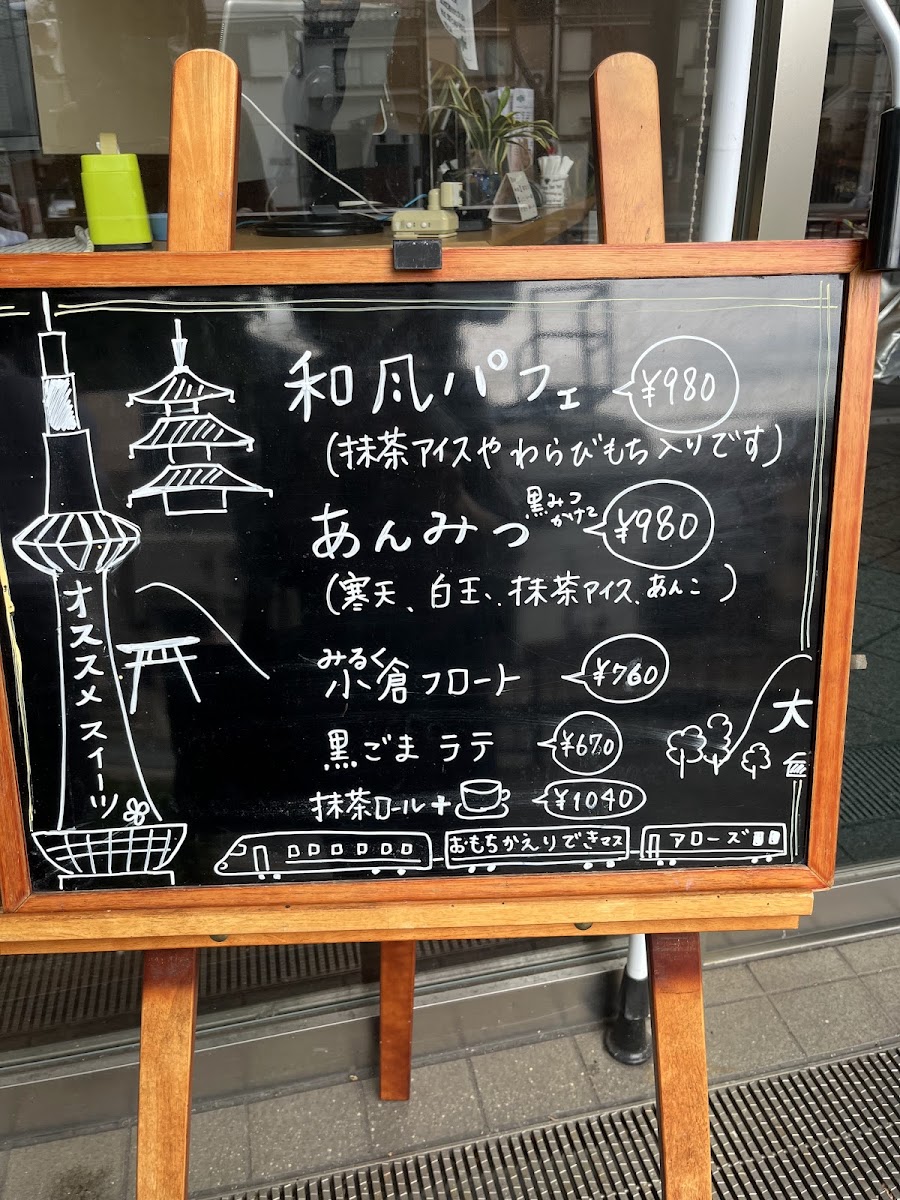 オススメ スイーツ
和風パフェ ¥980
(抹茶アイスや わらびもち 入りです)
あんみつ 黒みつかけて ¥980
(寒天、白玉、抹茶アイス、あんこ)
みるく
小倉フロート ¥760
黒ごま ラテ ¥670
抹茶ロール+ ¥1040
大
おもちかえりできマス
アローズ